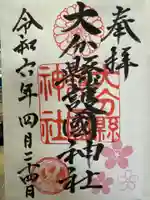 奉拝
大分縣護國神社
令和六年四月二十四日
大分縣
神社